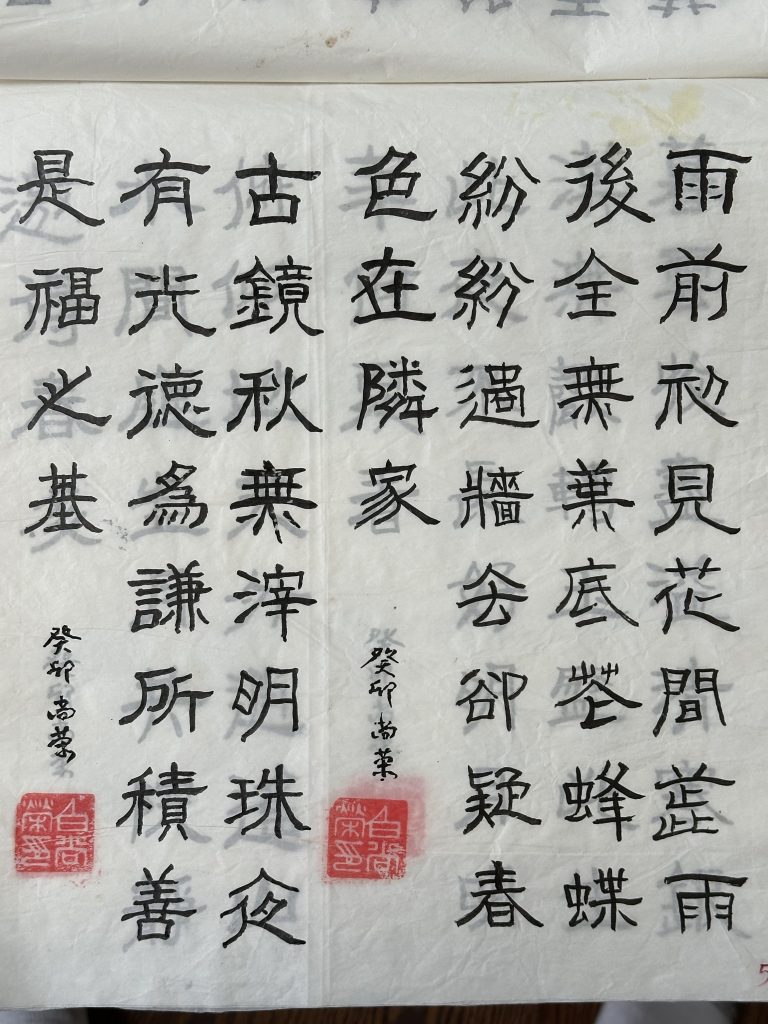 雨前初見花間蕊雨
後全無葉底花蜂蝶
紛紛過牆去卻疑春
色在隣家
癸卯尚榮
白尚榮印
古鏡秋無滓明珠夜
有光德為謙所積善
是福之基
癸卯尚榮
白尚榮印